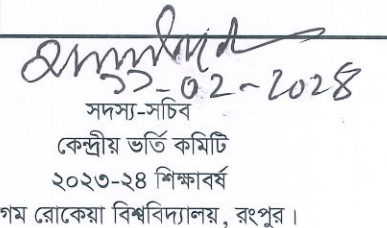 ১১-০২-২০২৪
সদস্য-সচিব
কেন্দ্রীয় ভর্তি কমিটি
২০২৩-২৪ শিক্ষাবর্ষ
গম রোকেয়া বিশ্ববিদ্যালয়, রংপুর।